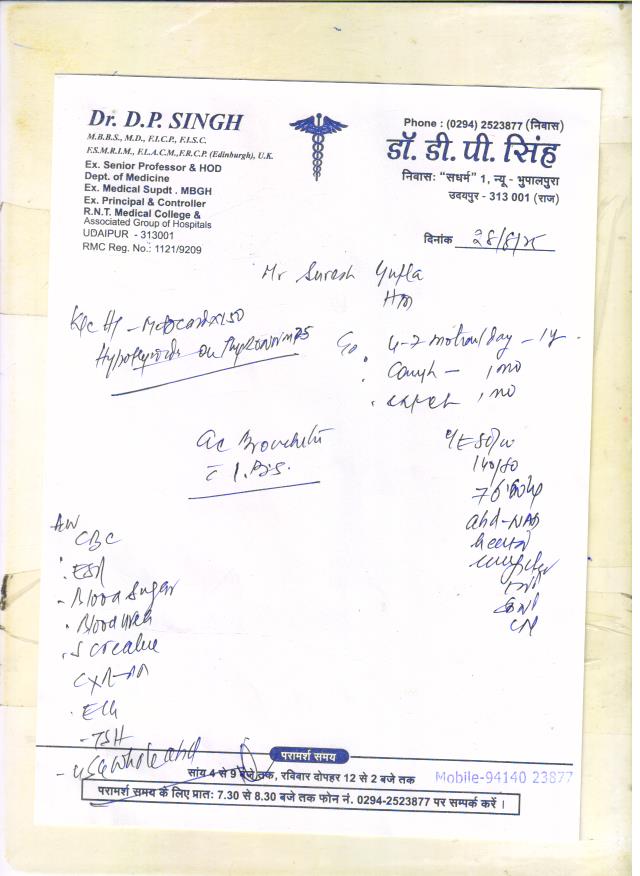 Dr. D.P. SINGH
M.B.B.S., M.D., F.I.C.P., F.I.S.C.
F.S.M.R.I.M., F.L.A.C.M.,F.R.C.P. (Edinburgh), U.K.
Ex. Senior Professor & HOD
Dept. of Medicine
Ex. Medical Supdt . MBGH
Ex. Principal & Controller
R.N.T. Medical College &
Associated Group of Hospitals
UDAIPUR - 313001
RMC Reg. No.: 1121/9209
Phone : (0294) 2523877 (निवास)
डॉ. डी. पी. सिंह
निवासः "सधर्म" 1, न्यू - भुपालपुरा
उदयपुर - 313 001 (राज)
दिनांक 28/8/25
Mr Suresh Gupta
K/c
Hypothyroids on Thyronorm 75
4-7 motion/day - 1y
Cough - 1 mo
1 mo
Ac Bronchitis
c I.B.S.
140/80
abd-NAD
CBC
ESR
- Blood Sugar
Blood urea
S creatine
CXR-PA
ECG
- TSH
- USG whole abd
परामर्श समय
सांय 4 से 9 बजे तक, रविवार दोपहर 12 से 2 बजे तक
Mobile-94140 23877
परामर्श समय के लिए प्रातः 7.30 से 8.30 बजे तक फोन नं. 0294-2523877 पर सम्पर्क करें ।